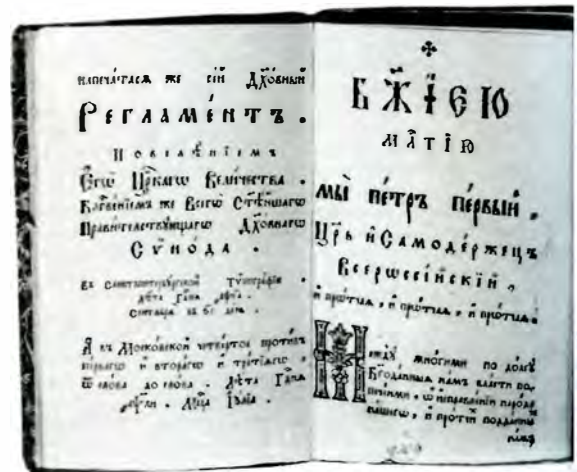 напечатася же сїй Дꙋхо́вный
Регла́ментъ .
Повелѣ́нїемъ
Егѡ̀ Црⷭ҇кагѡ Вели́чества .
Блгⷭ҇ве́нїемъ же Всегѡ̀ Ст҃ѣ́йшагѡ
Прави́телствꙋющагѡ Дꙋхо́внагѡ
Сѵно́да .
въ санктпитербꙋ́ргской тѵпогра́фїи .
лѣ́та гдⷭ҇ня
септа́врїа въ день .
А въ Моско́вской четве́ртое проти́въ
пе́рвагѡ и҆ втора́гѡ и҆ тре́тїагѡ ,
ѿ сло́ва до сло́ва . лѣ́та Гдⷭ҇ня
мцⷭ҇а Іꙋ́лїа .
Бж҃їею
млⷭ҇тїю
мы̀ пе́тръ пе́рвый ,
Цр҃ь и҆ Самоде́ржецъ
Всерѡссі́йскїй ,
и҆ прѡ́тчаѧ , и҆ прѡ́тчаѧ , и҆ прѡ́тчаѧ .
Междꙋ̀ мно́гими по до́лгꙋ
Бг҃ода́нныѧ на́мъ вла́сти по
пече́ньми , ѡ҆ и҆справле́нїи наро́да
на́шегѡ , и҆ про́тчиⷯ по́дданныⷯ
на́мъ